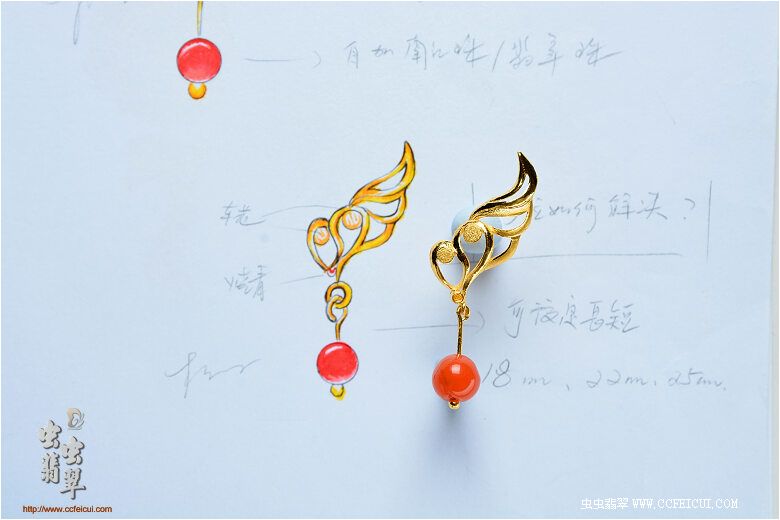 加南红珠/翡翠珠
车花
如何解决?
烧青
可设定长短
18mm、22mm、25mm.
虫虫翡翠
http://www.ccfeicui.com
虫虫翡翠 WWW.CCFEICUI.COM